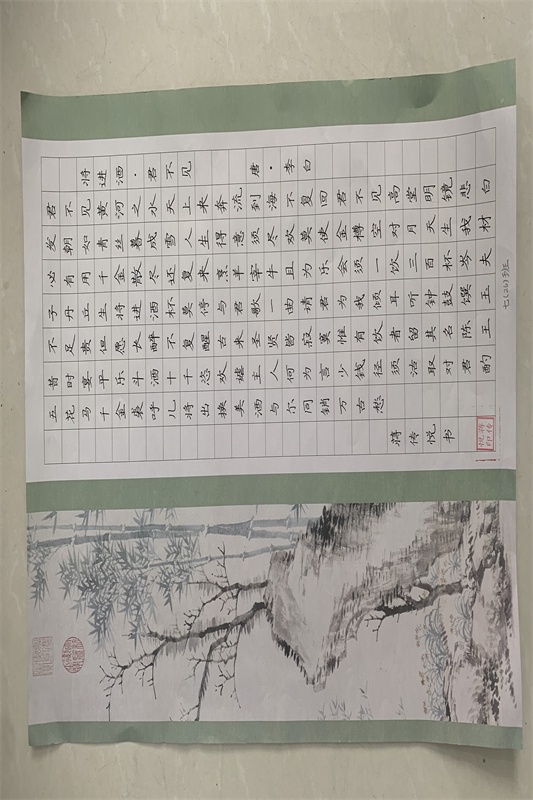 将进酒·君不见 唐·李白
君不见黄河之水天上来奔流到海不复回君不见高堂明镜悲白
发朝如青丝暮成雪人生得意须尽欢莫使金樽空对月天生我材
必有用千金散尽还复来烹羊宰牛且为乐会须一饮三百杯岑夫
子丹丘生将进酒杯莫停与君歌一曲请君为我倾耳听钟鼓馔玉
不足贵但愿长醉不复醒古来圣贤皆寂寞惟有饮者留其名陈王
昔时宴平乐斗酒十千恣欢谑主人何为言少钱径须沽取对君酌
五花马千金裘呼儿将出换美酒与尔同销万古愁 蒋传悦书
蒋传悦印
七(26)班